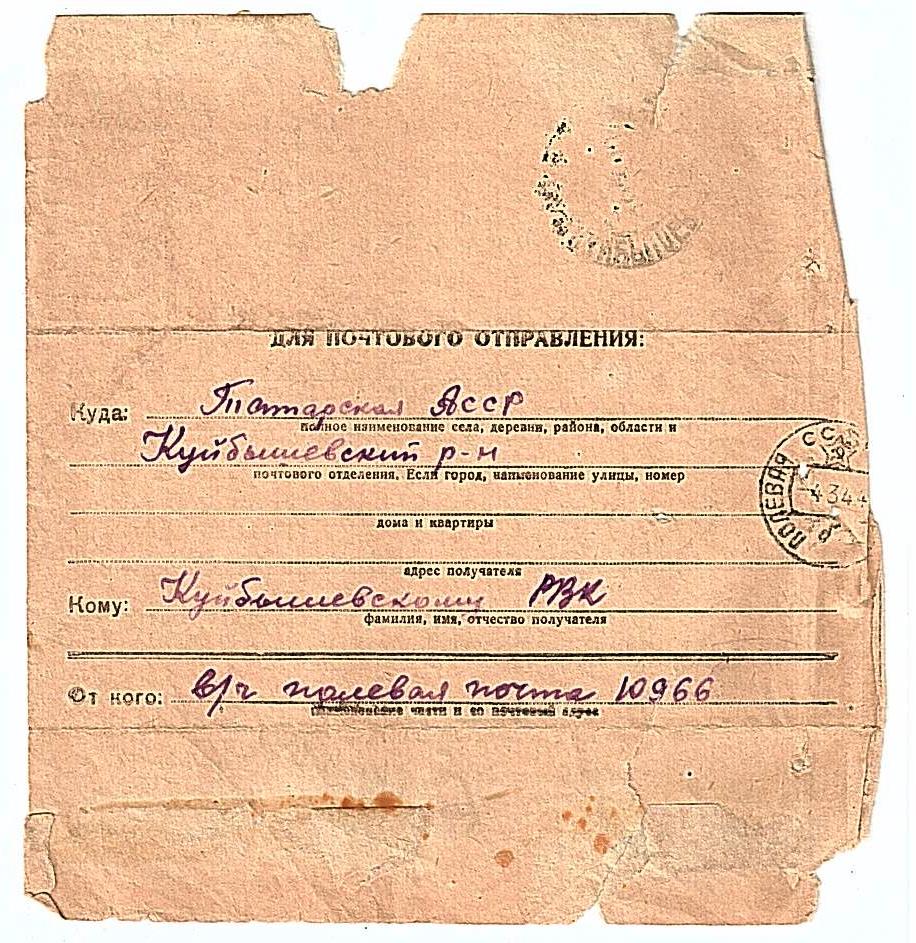 КУЙБЫШЕВ
ДЛЯ ПОЧТОВОГО ОТПРАВЛЕНИЯ:
Куда: Татарская АССР
полное наименование села, деревни, района, области и
Куйбышевский р-н
почтового отделения. Если город, наименование улицы, номер
дома и квартиры
адрес получателя
ПОЛЕВАЯ СССР
-4 3 44
Кому: Куйбышевскому РВК
фамилия, имя, отчество получателя
От кого: в/ч полевая почта 10966
части и ее почтовый адрес